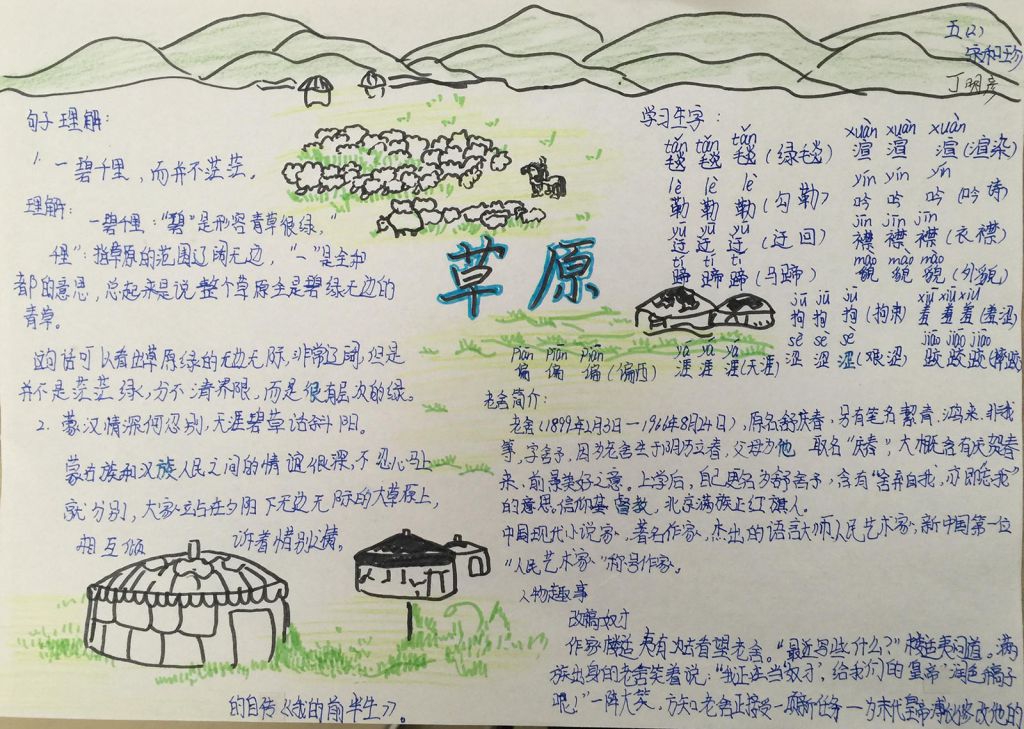 五(2)
丁明彦
句子理解:
1. 一碧千里,而并不茫茫。
理解:
一碧千里:"碧"是形容青草很绿,"
里":指草原的范围辽阔无边,"一"是全和
都的意思,总起来是说整个草原全是碧绿无边的
青草。
这句话可以看出草原绿的无边无际,非常辽阔,但是
并不是茫茫绿,分不清界限,而是很有层次的绿。
2. 蒙汉情深何忍别,天涯碧草话斜阳。
蒙古族和汉族人民之间的情谊很深,不忍心马上
就分别,大家立占在夕阳下无边无际的大草原上,
相互倾 诉着惜别之情。
草原
学习生字:
tǎn tǎn tǎn xuàn xuàn xuàn
毯 毯 毯(绿毯) 渲 渲 渲(渲染)
lè lè lè yín yín yín
勒 勒 勒(勾勒) 吟 吟 吟(吟诗)
yū yū yū jīn jīn jīn
迂 迂 迂(迂回) 襟 襟 襟(衣襟)
tí tí tí mào mào mào
蹄 蹄 蹄(马蹄) 貌 貌 貌(外貌)
jū jū jū xiū xiū xiū
拘 拘 拘(拘束) 羞 羞 羞(羞涩)
piān piān piān yá yá yá sè sè sè jiāo jiāo jiāo
偏 偏 偏(偏西) 涯 涯 涯(天涯) 涩 涩 涩(艰涩) 跤 跤 跤(摔跤)
老舍简介:
老舍(1899年2月3日一1966年8月24日),原名舒庆春,另有笔名絜青、鸿来、非我
等,字舍予,因为老舍生于阴历立春,父母为他 取名"庆春",大概含有庆贺春
来、前景美好之意。上学后,自己更名为舒舍予,含有"舍弃自我,亦即忘我"
的意思。信仰基督教,北京满族正红旗人。
中国现代小说家、著名作家、杰出的语言大师人民艺术家、新中国第一位
"人民艺术家"称号作家。
人物趣事
改稿奴才
作家楼适夷有次去看望老舍。"最近写些什么?"楼适夷问道。满
族出身的老舍笑着说:"我正在当'奴才',给我们的'皇帝'润色稿子
呢!"一阵大笑,方知老舍正接受一项新任务一为末代皇帝溥仪修改他的
的自传《我的前半生》。